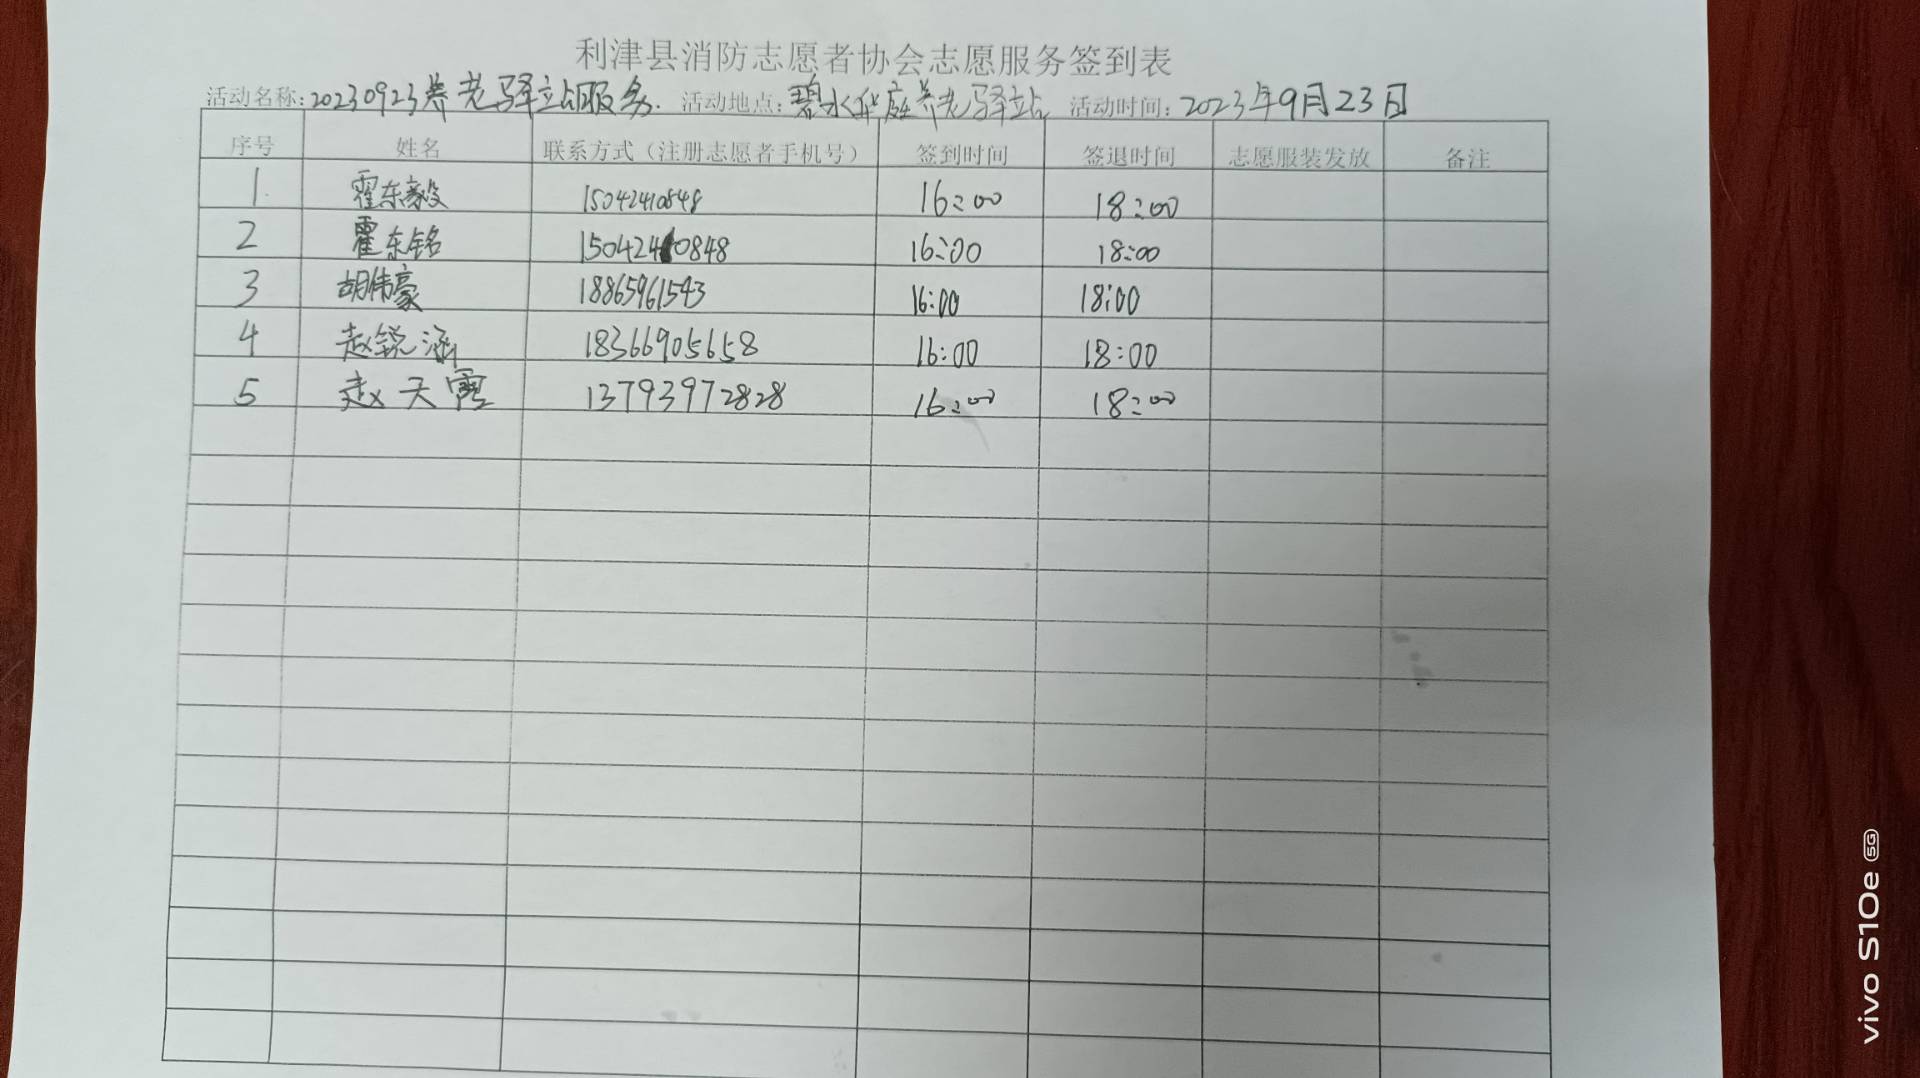 利津县消防志愿者协会志愿服务签到表
活动名称:20230923养老驿站服务. 活动地点:碧水华庭养老驿站 活动时间:2023年9月23日
序号 姓名 联系方式（注册志愿者手机号） 签到时间 签退时间 志愿服装发放 备注
1. 霍东毅 15042410848 16:00 18:00
2 霍东铭 15042410848 16:00 18:00
3 胡伟豪 18865961543 16:00 18:00
4 赵锐涵 18366905658 16:00 18:00
5 赵天霱 13793972828 16:00 18:00
vivo S10e 5G